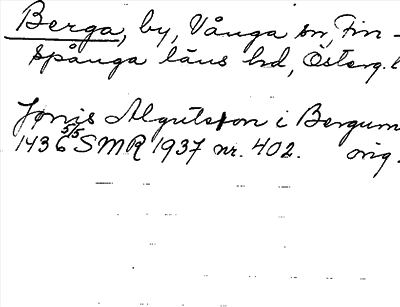 Berga, by, Vånga sn, Fin-
spånga läns hd, Österg. l
Jønis Algutsson i Bergum
1436 5/5 SMR 1937 nr. 402. orig.